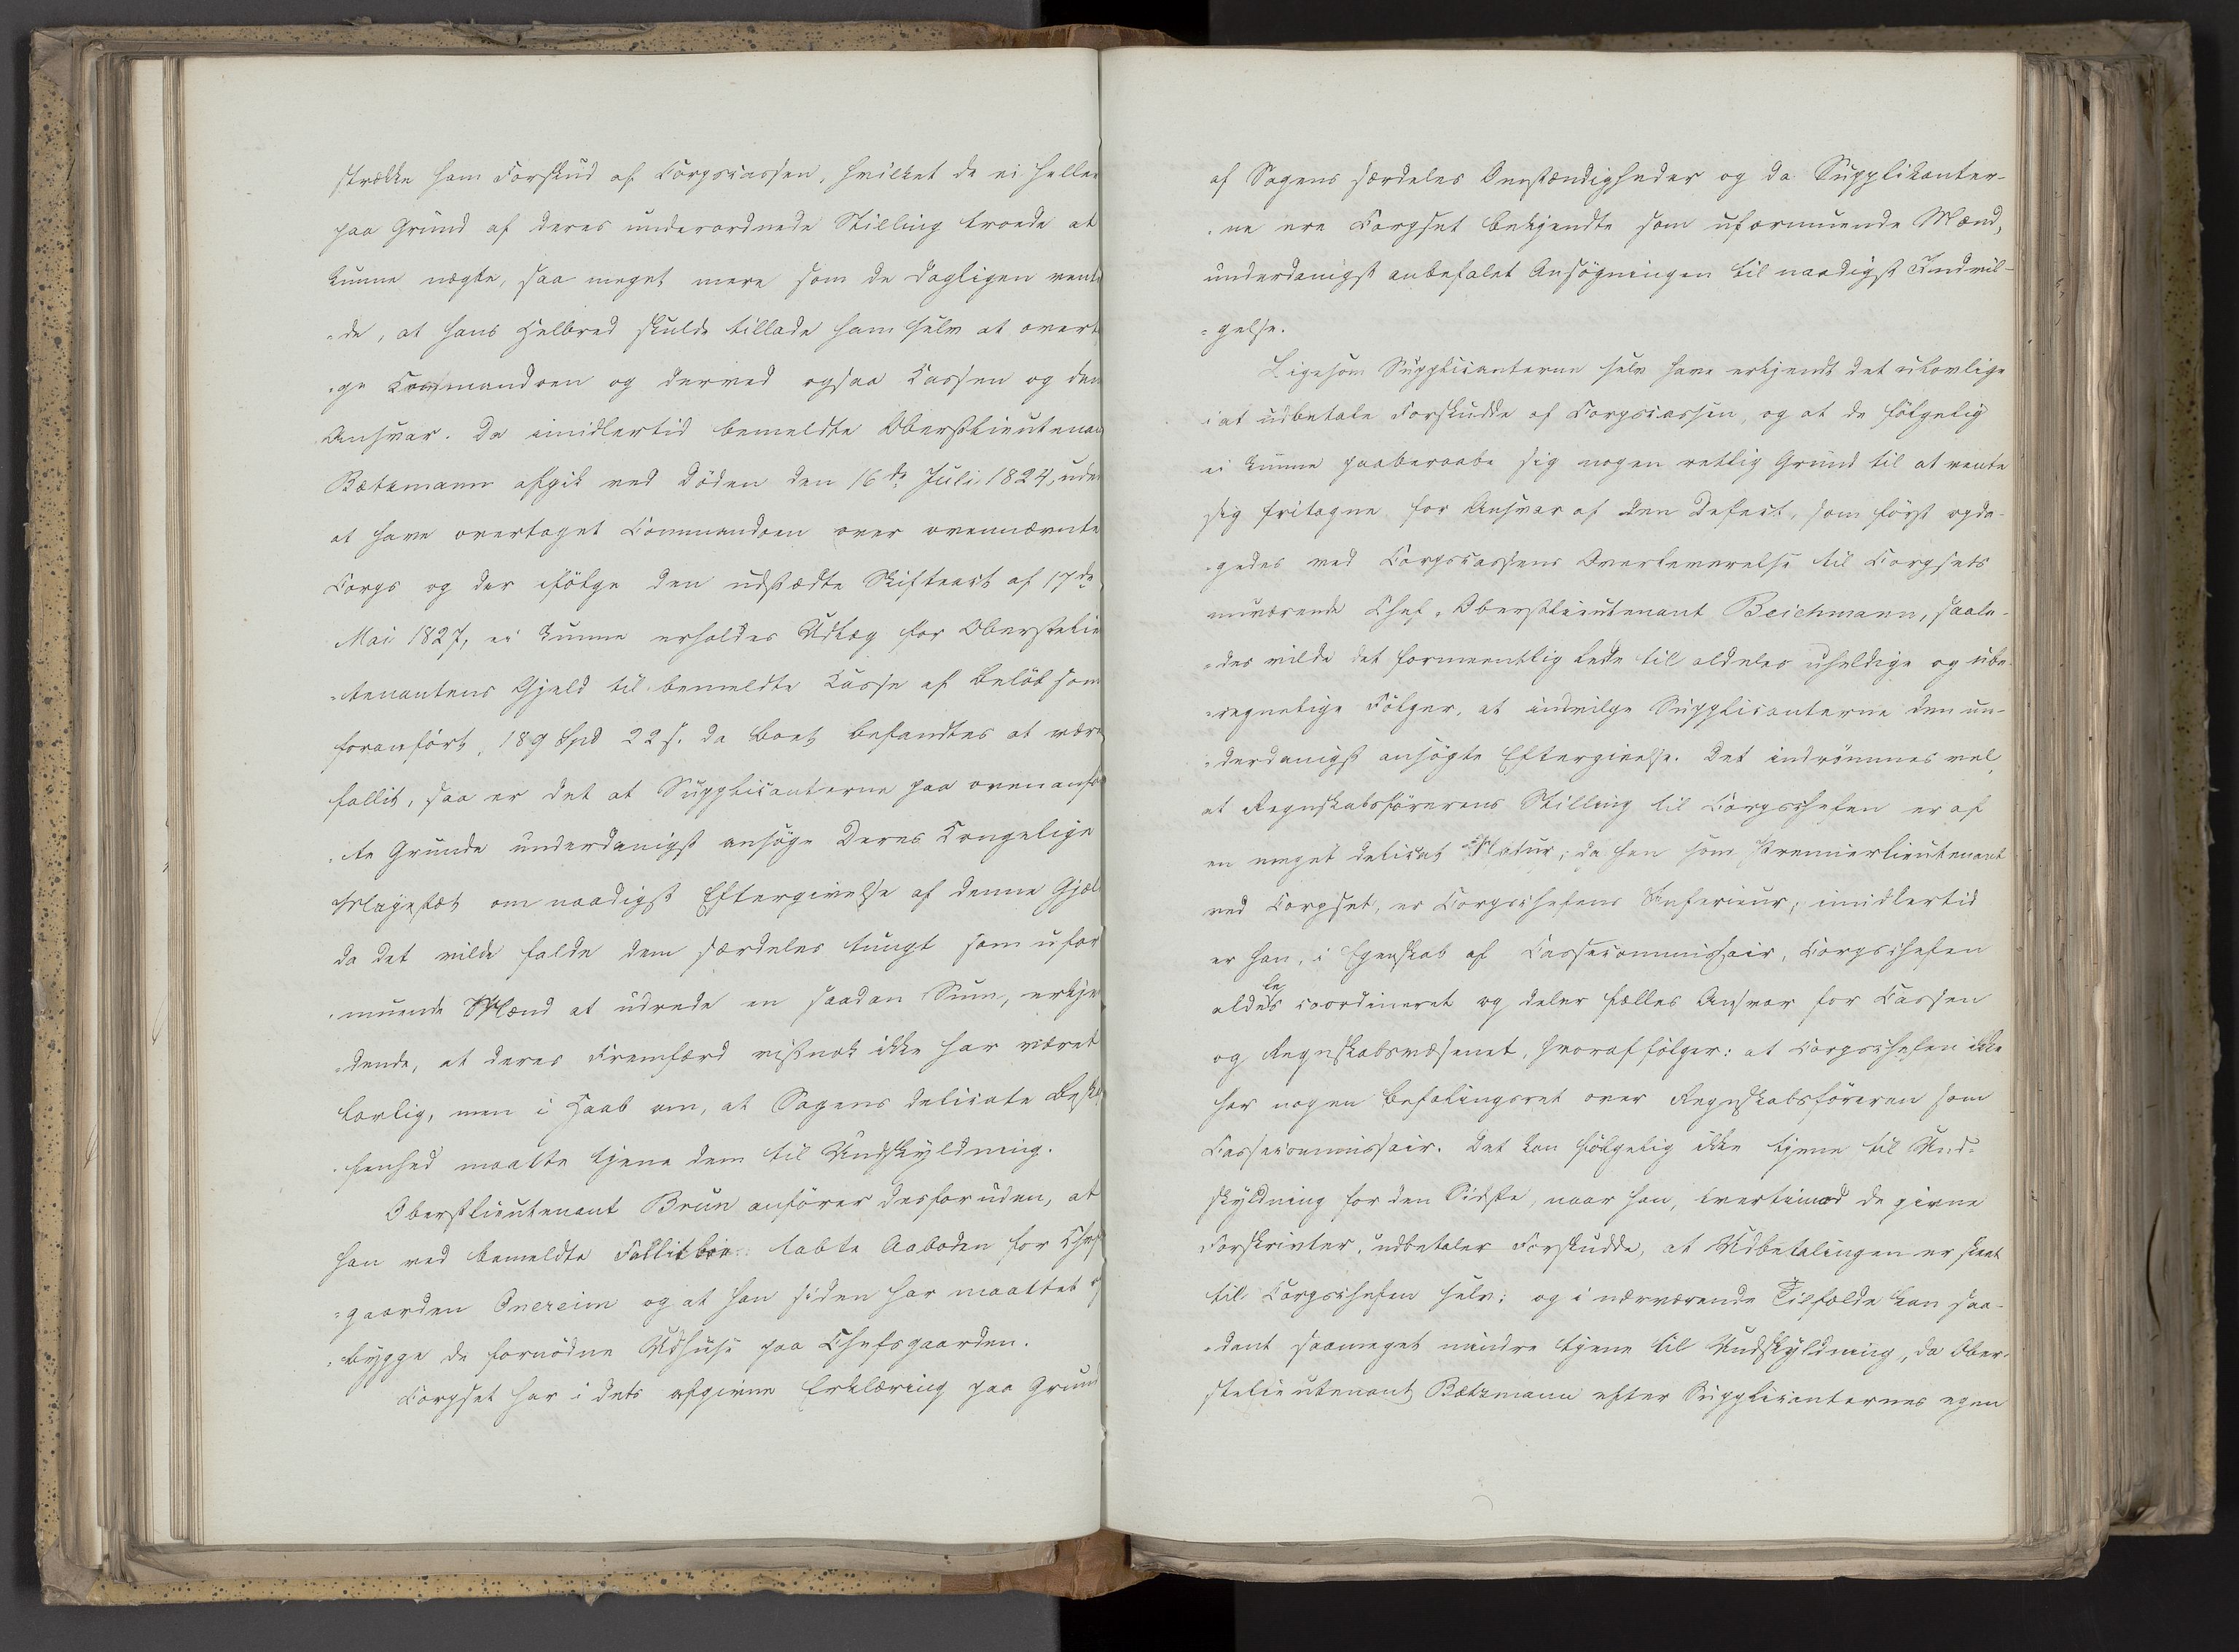 strække ham Forskud af Corpscassen, hvilket de ei heller
paa Grund af deres underordnede Stilling troede at
kunne nægte, saa meget mere som de dagligen vente
=de, at hans Helbred skulde tillade ham selv at overta
=ge Commandoen og derved ogsaa Cassen og dens
Ansvar. Da imidlertid bemeldte Oberstlieutenant
Bætzmann afgik ved Döden den 16de Juli 1824, uden
at have overtaget Commandoen over ovennævnte
Corps og der ifölge den udstædte Skifteact af 17de
Mai 1827, ei kunne erholdes Udlæg for Oberstlieu
=tenantens Gjeld til bemeldte Casse af Belöb som
foranfört, 189 Spd 22 s. da Boet befandtes at være
fallit, saa er det at Supplicanterne paa ovenanför
=te Grunde underdanigst ansöge Deres Kongelige
Majestæt om naadigst Eftergivelse af denne Gjæld
da det vilde falde dem særdeles tungt som ufor
=muende Mænd at udrede en saadan Sum, erkjen
=dende, at deres Fremfærd vistnok ikke har været
lovlig, men i Haab om, at Sagens delicate Beskaf
=fenhed maatte tjene dem til Undskyldning.
Oberstlieutenant Brun anförer desforuden, at
han ved bemeldte Fallitboe tabte Aaboden for Chefs
=gaarden Qvereim og at han siden har maattet op
=bygge de fornödne Udhuse paa Chefsgaarden.
Corpset har i dets afgivne Erklæring paa Grund
af Sagens særdeles Omstændigheder og da Supplikanter-
=ne ere Corpset bekjendte som uformuende Mænd,
underdanigst anbefalet Ansögningen til naadigst Indvil-
=gelse.
Ligesom Supplicanterne selv have erkjendt det ulovlige
i at udbetale Forskudde af Corpscassen, og at de fölgelig
ei kunne paaberaabe sig nogen retlig Grund til at vente
sig fritagne for Ansvar af den Defect, som först opda-
=gedes ved Corpscassens Overleverelse til Corpsets
nuværende Chef, Oberstlieutenant Beichmann, saale-
=des vilde det formeentlig lede til aldeles uheldige og ube-
=regnelige Fölger, at indvilge Supplicanterne den un-
=derdanigst ansögte Eftergivelse. Det indrömmes vel,
at Regnskabsförerens Stilling til Corpschefen er af
en meget delicat Natur; da han som Premierlieutenant
ved Corpset, er Corpschefens Inferieur; imidlertid
er han, i Egenskab af Cassecommissair, Corpschefen
aldeles coordineret og deler fælles Ansvar for Cassen
og Regnskabsvæsenet, hvoraf fölger: at Corpschefen ikke
har nogen Befalingsret over Regnskabsföreren som
Cassecommissair. Det kan fölgelig ikke tjene til Und=
skyldning for den Sidste, naar han, tvertimod de givne
Forskrivter, udbetaler Forskudde, at Udbetalingen er skeet
til Corpschefen selv; og i nærværende Tilfælde kan saa-
=dant saameget mindre tjene til Undskyldning, da Ober-
stlieutenant Bætzmann efter Supplicanternes egen